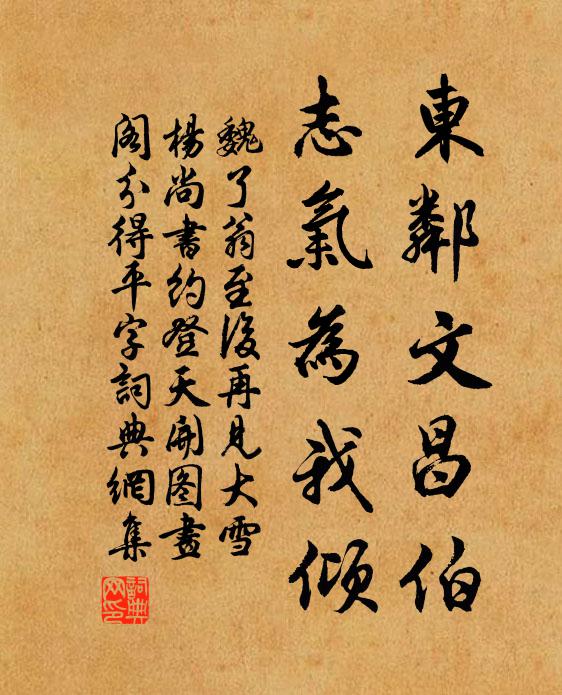 東鄰文昌伯
志氣為我傾
魏了翁至後再見大雪
楊尚書約登天開图畫
阁分得平字詞典網集